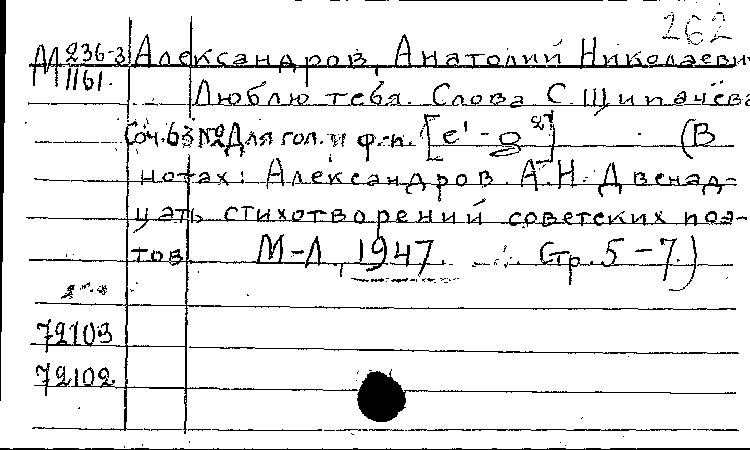 262
М 236-3 Александров, Анатолий Николаеви
1161. Люблю тебя. Слова С. Щипачёва
Соч. 63 №2 Для гол. и ф-п. [e¹ - g²] (В
нотах: Александров А.Н. Двенад-
цать стихотворений советских поэ-
тов М-Л, 1947. Стр. 5-7.)
72103
72102